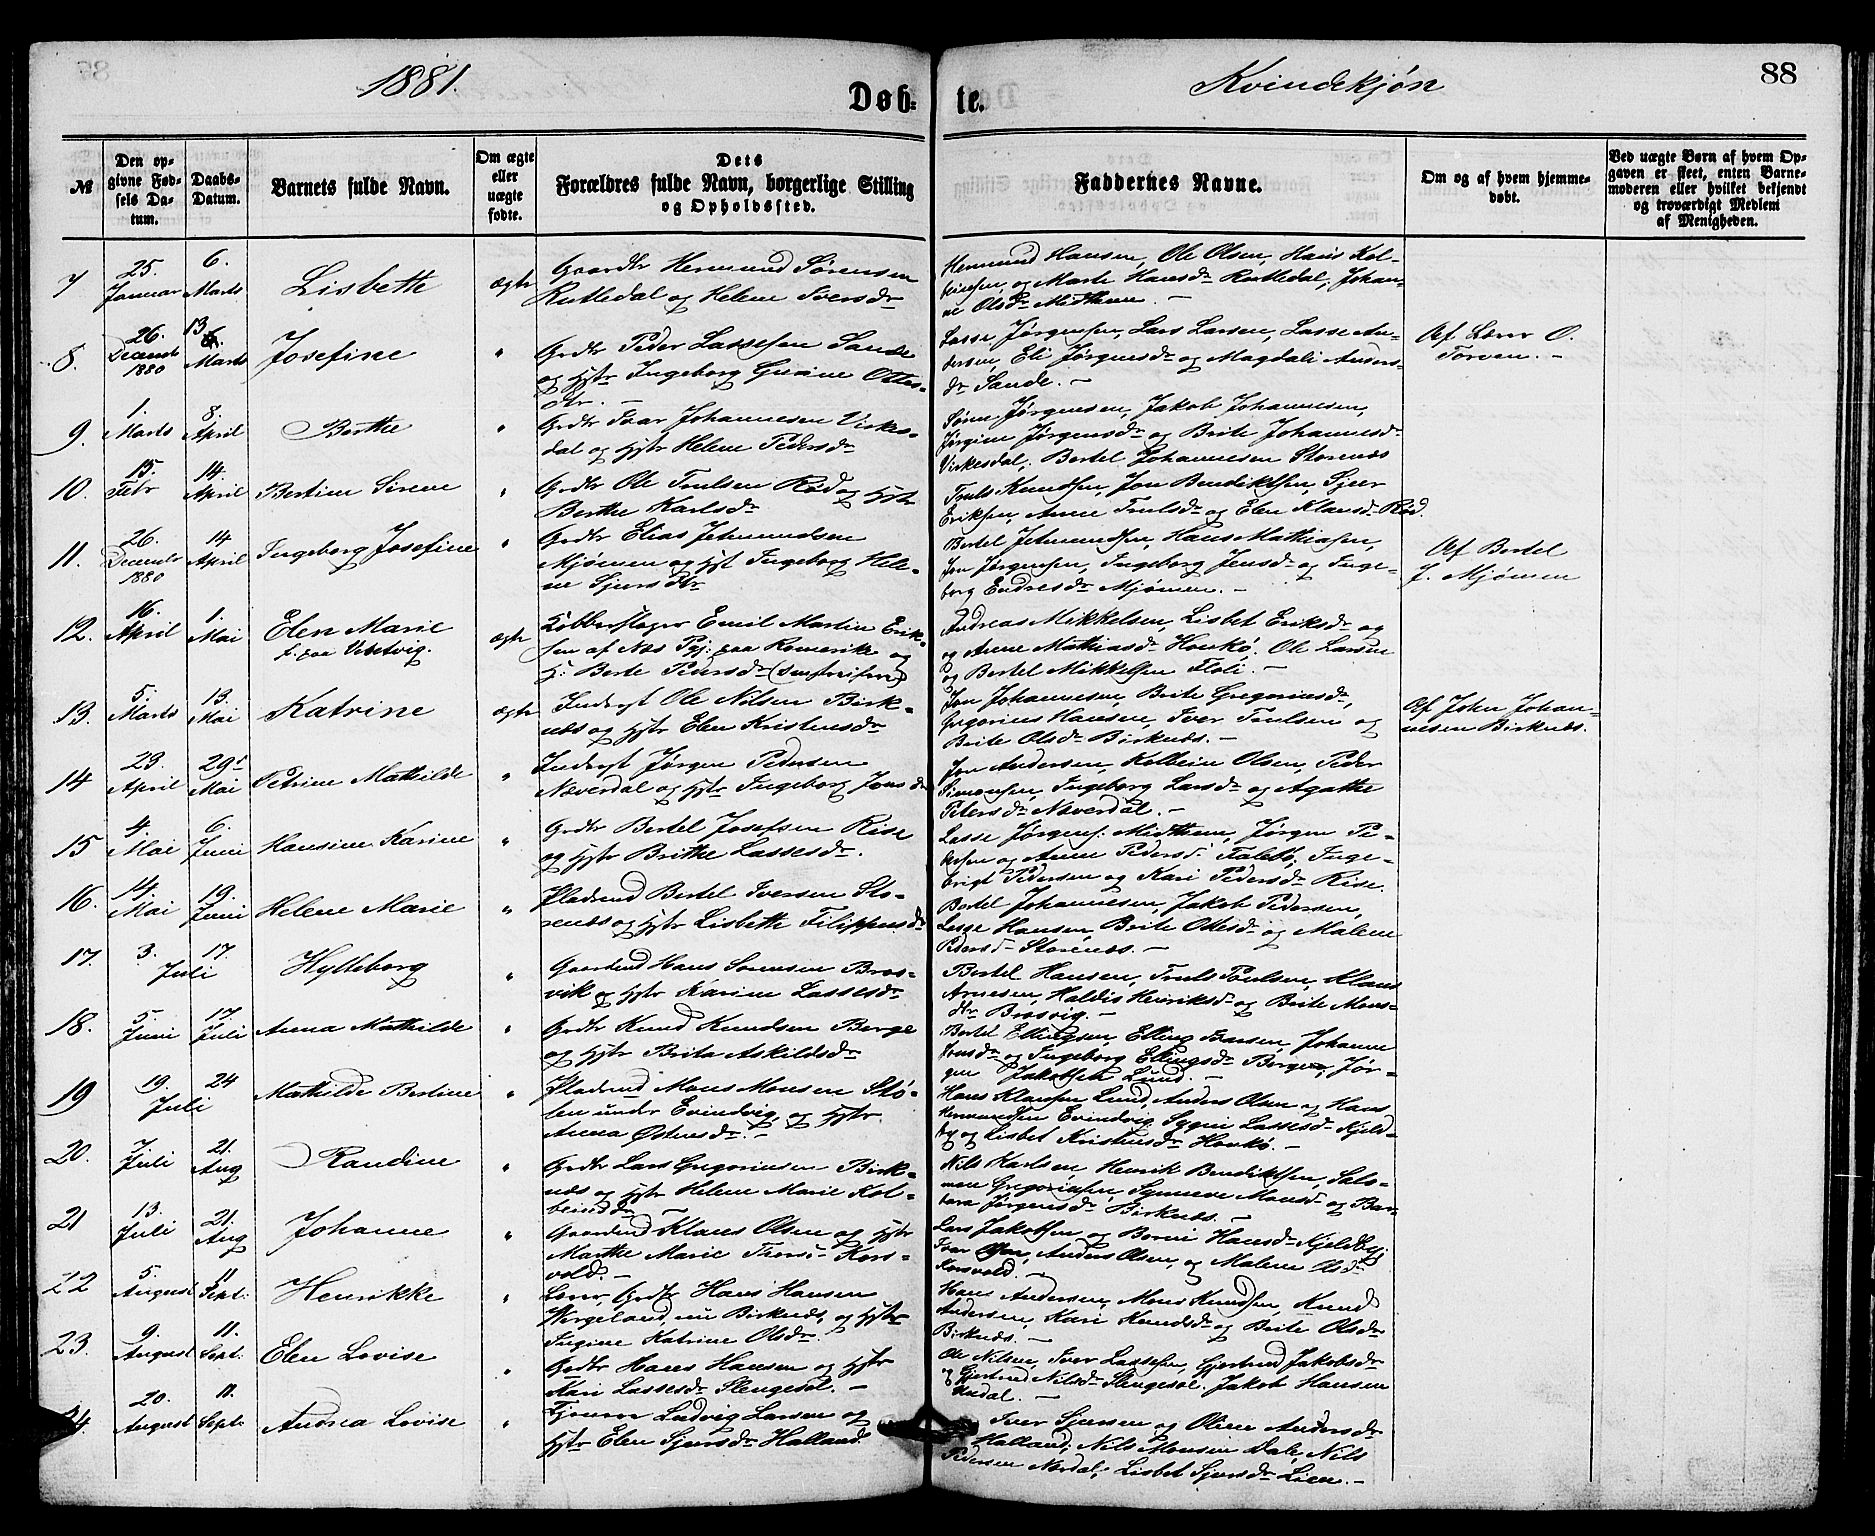 1881.
Døb-
te.
Kvindekjøn
88
№
Den op-
givne Fød-
sels Da-
tum.
Daabs-
Datum.
Barnets fulde Navn.
Om ægte
eller
uægte
fødte.
Dets
Forældres fulde Navn, borgerlige Stilling
og Opholdssted.
Faddernes Navne.
Om og af hvem hjemme-
døbt.
Ved uægte Børn af hvem Op-
gaven er skeet, enten Barne-
moderen eller hvilket bekjendt
og troværdigt Medlem
af Menigheden.
7
25.
Januar
6.
Marts
Lisbette
ægte
Gaardbr Hermund Sørensen
Rutledal og Helene Iversdr
Hermund Hansen, Ole Olsen, Hans Kol-
beinsen, og Marte Hansdr Rutledal, Johan-
ne Olsdr Midttun. -
8.
26.
Decembr
1880
13
Marts
Josefine
"
Grdbr Peder Lassesen Sande
og Hstr Ingeborg Gurine Ottes-
dtr. -
Lasse Jørgensen, Lars Larsen, Lasse An-
dersen, Eli Jørgensdr og Magdali Anders-
dr Sande. -
Af Lærer O.
Torven. -
9.
1.
Marts
8.
April
Berthe
"
Grdbr Ivar Johannesen Virkes-
dal og Hstr Helene Pedersdr
Jørgensen, Jakob Johannesen,
Jørgine Jørgensdr og Brite Johannesdr
Virkesdal, Bertel Johannesen Storenæs
10.
15.
Febr
14.
April
Bertine Sirene
"
Grdbr Ole Trulsen Rød og Hstr
Berthe Karlsdr
Truls Knudsen, Jon Bendiktsen, Sjur
Eriksen, Anne Trulsdr og Elen Klausdr Rød.
11.
26.
Decembr
1880
14
April
Ingeborg Josefine
"
Grdbr Elias Jetmundsen
Mjømen og Hst Ingeborg Hele-
ne Sjursdtr
Bertel Jetmundsen, Hans Mathiasen,
Jon Jørgensen, Ingeborg Jensdr og Inge-
borg Endresdr Mjømen. -
Af Bertel
J. Mjømen
12.
16.
April
1.
Mai
Elen Marie
f. paa
ægte
Kobberslager Emil Martin Erik-
sen af Næs Pgj: paa Romerike og
H: Berte Petersdr
Andreas Mikkelsen, Lisbet Eriksdr og
og Anne Mathiasdr Hovkø. Ole Larsen
og Bertel Mikkelsen Floli. -
13.
5.
Marts
13.
Mai
Katrine
ægte
Inderst Ole Nilsen Birk-
næs og Hstr Elen Kristensdr
Jon Johannesen, Brite Gregoriusdr,
Gregorius Hansen, Iver Trulsen og
Brite Olsdr Birknæs. -
Af John Johan-
nesen Birknæs.
14
23.
April
29de
Mai
Petrine Mathilde
"
Inderst Jørgen Pedersen
Næverdal og Hstr Ingeborg Jonsdr
Jon Andersen, Kolbein Olsen, Peder
Simonsen, Ingeborg Larsdr og Agathe
Petersdr Næverdal. -
15
4.
Mai
6.
Juni
Hansine Karine
"
Grdbr Bertel Josefsen Rise
og Hstr Brithe Lassesdr.
Lasse Jørgens: Midttun, Jørgen Pe-
dersen og Anne Pedersd Falebø, Inge-
brigt Pedersen og Kari Pedersdr Rise.
16.
14.
Mai
19.
Juni
Helene Marie
"
Pladsmd Bertel Iversen Sto-
renæs og Hstr Lisbette Filippusdr
Bertel Johannesen, Jakob Pedersen,
Lasse Hansen, Brite Ottesdr og Malene
Pedersd Storenæs. -
17.
3.
17.
Juli
Hylleborg
"
Gaardmd Hans Sørensen Bros-
vik og Hstr Karine Lassesdr
Bertel Hansen, Truls Poulsen, Klaus
Arnesen, Haldis Henriksdr og Brite Mons-
dtr Brosvig. -
18.
5.
Juni
17.
Juli
Anna Mathilde
"
Grdbr Knud Knudsen Berge
og Hstr Brita Askildsdr
Bertel Ellingsen, Elling Hansen, Johanne
Jonsdr og Ingeborg Ellingsdr Berge, Jør-
gen Jakobsen Lund. -
19
19.
24
Juli
Mathilde Bertine
"
Pladsmd Mons Monsen Stø-
len under Evindvig, og Hstr
Anna Østensdr. -
Hans Klausen Lund, Anders Olsen og Hans
Hermundsen Evindvig, Sygni Lassesdr Kjeld-
by og Lisbet Kristensdr Hovkø. -
20.
7.
Juli
21.
Aug
Randine
"
Grdbr Lars Gregoriusen Birk-
næs og Hstr Helene Marie Kol-
beinsdr
Nils Karlsen, Henrik Bendiktsen, Salo-
mon Gregoriusen, Synneve Monsdr og Bar-
bara Jørgensdr Birknæs. -
21
13.
Juli
21.
Aug
Johanne
"
Gaardmd Klaus Olsen og Hstr
Marthe Marie Iversd Kors-
vold. -
Lars Jakobsen og Berni Hansdr Kjeldby,
Ivar Olsen, Anders Olsen, og Malene Olsdr
Korsvold. -
22
5.
August
11
Sept.
Henrikke
"
Lærer, Grdbr Hans Hansen
Wergeland, nu Birknæs, og Hstr
Jugine Katrine Olsdr.
Hans Andersen, Mons Knudsen, Knud
Andersen, Kari Knudsdr og Brite Olsdr
Birknæs. -
23.
9.
August
11.
Sept.
Elen Lovise
"
Grdbr Hans Hansen og Hstr
Kari Lassesdr Slengesol. -
Ole Nilsen, Iver Lassesen, Gjertrud Jakobsdr
og Gjertrud Nilsdr Slengesol. Jakob Hansen
24.
20.
August
11.
Sept.
Andrea Lovise
"
Ludvig Larsen og
Hstr Elen Sjursdr Halland.
Iver Sjursen og Oline Andersdr
Halland, Nils Monsen Dale, Nils
Pedersen Nordal, Lisbet Sjursdr Lien. -